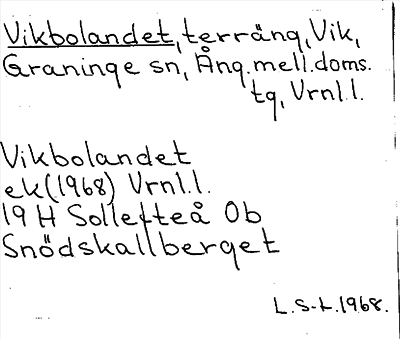 Vikbolandet, terräng, Vik,
Graninge sn, Ång. mell. doms.
tg, Vrnl.l.
Vikbolandet
ek (1968) Vrnl.l.
19 H Sollefteå Ob
Snödskallberget
L.S-L.1968.